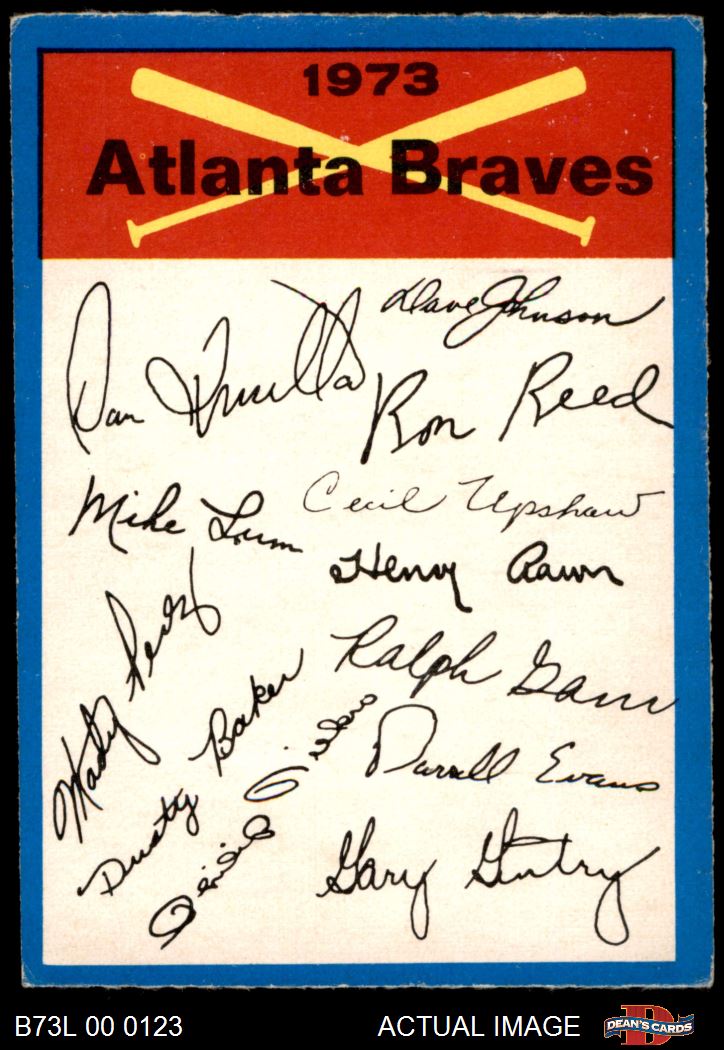 1973
Atlanta Braves
Dan
Dave Johnson
Ron Reed
Mike Lum
Cecil Upshaw
Henry Aaron
Ralph Garr
Dusty Baker
Darrell Evans
Gary Gentry
B73L 00 0123
ACTUAL IMAGE
DEAN'S CARDS